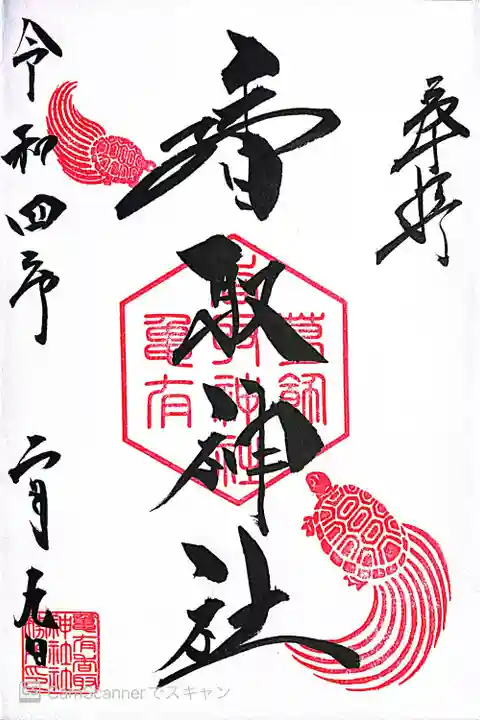 奉拝
香取神社
葛飾
香取神社
亀有
令和四年 二月 九日
亀有香取
神社社
CamScannerでスキャン